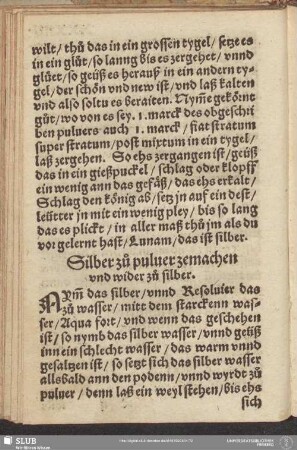 wilt/ thů das in ein grossen tygel/ setze es
in ein glůt/ so lanng bis es zergehet/ vnnd
glüet/ so geüß es herauß in ein andern ty-
gel/ der schön vnd new ist/ vnd laß kalten
vnd also soltu es beraiten. Nym̃e gekörnt
gůt/ wo von es sey. 1. marck des obgeschri
ben puluers auch 1. marck/ fiat stratum
super stratum/ post mixtum in ein tygel/
laß zergehen. So ehs zergangen ist/ geüß
das in ein gießpuckel/ schlag oder klopff
ein wenig ann das gefäß/ das ehs erkalt/
Schlag den könig ab/ setz jn auf ein dest/
leütter jn mit ein wenig pley/ bis so lang
das es plickt/ in aller maß thů jm als du
vor gelernt hast/ Lunam/ das ist silber.
Silber zů puluer zemachen
vnd wider zů silber.
NYm̃ das silber/ vnnd Resoluier das
zů wasser/ mitt dem starckenn was-
ser/ Aqua fort/ vnd wenn das geschehen
ist/ so nymb das silber wasser/ vnnd geüß
inn ein schlecht wasser/ das warm vnnd
gesaltzen ist/ so setzt sich das silber wasser
allsbald ann den podenn/ vnnd wyrdt zů
puluer/ denn laß ein weyl stehen/ bis ehs
sich
SLUB
Wir führen Wissen.
UNIVERSITÄTSBIBLIOTHEK
FREIBERG